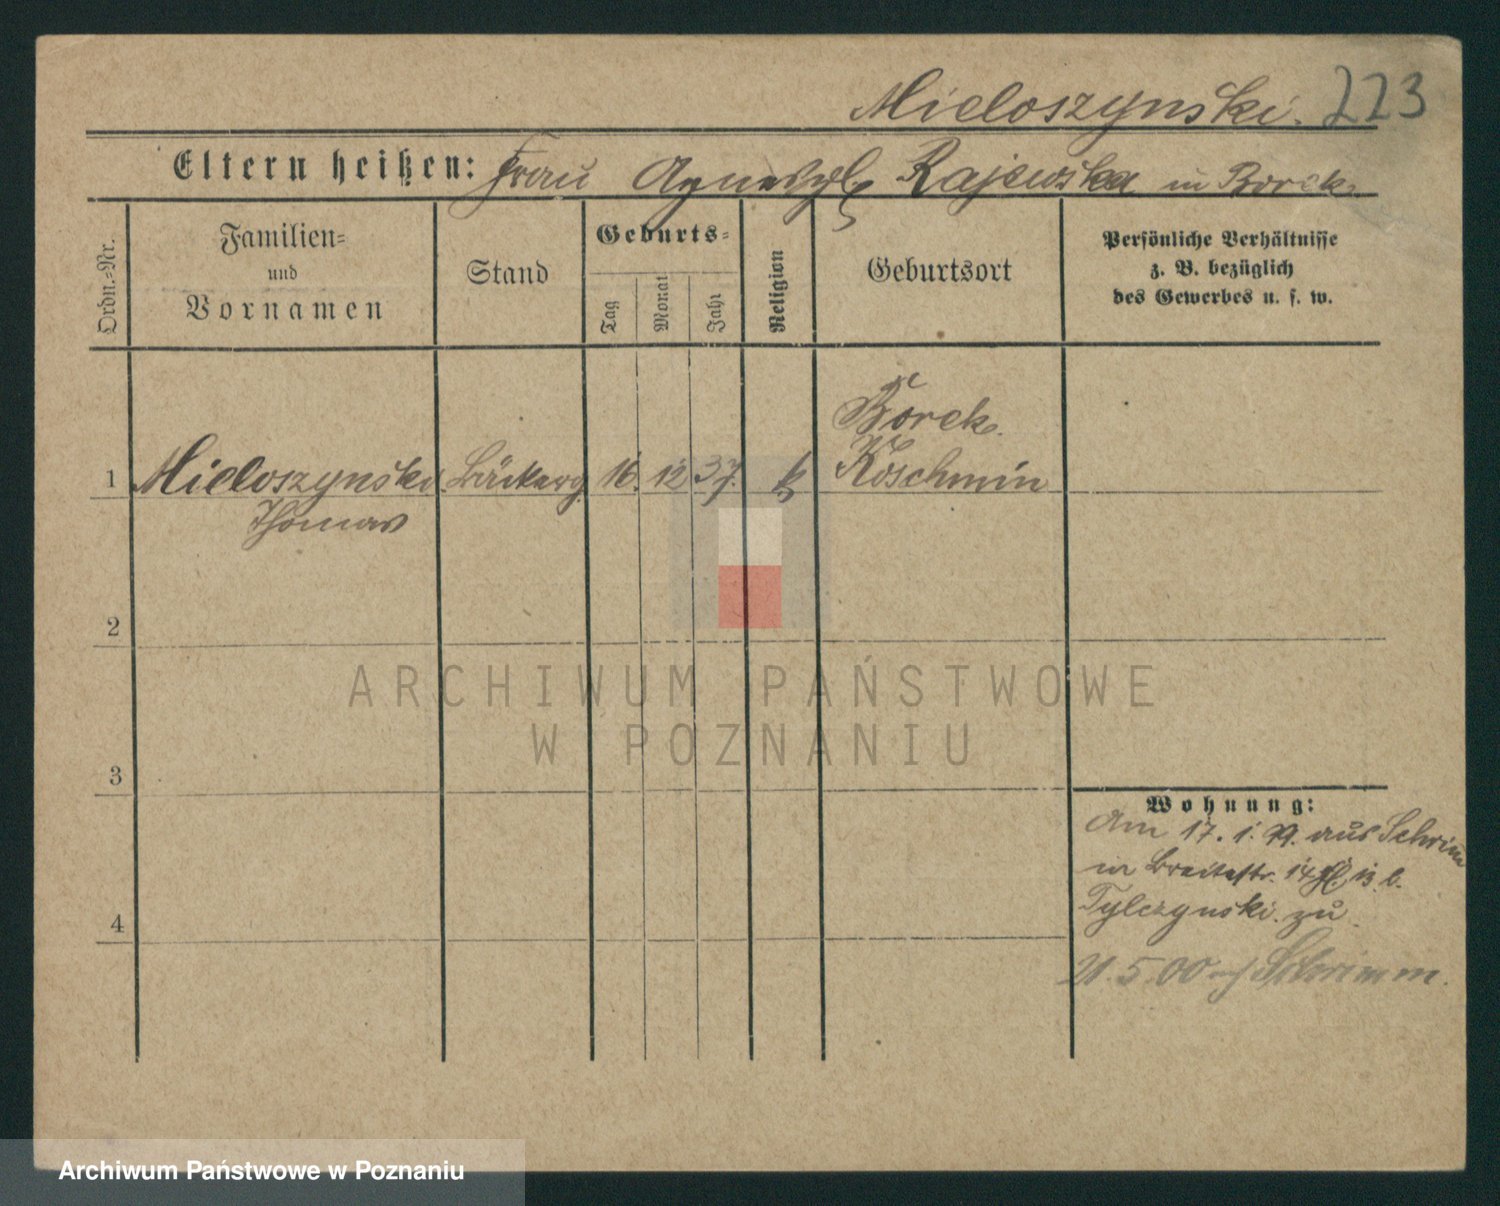 Mieloszynski. 223
Eltern heißen: Frau Agnes Rajewska in Borek.
Ordn.-Nr.
Familien-
und
Vornamen
Stand
Geburts-
Tag
Monat
Jahr
Religion
Geburtsort
Persönliche Verhältnisse
z. B. bezüglich
des Gewerbes u. s. w.
Borek.
1 Mieloszynski Bäckerg. 16. 12 37. k Koschmin
Thomas
2
ARCHIWUM PAŃSTWOWE
W POZNANIU
3
Wohnung:
Am 17. 1. 99. aus Schrim
in Breitestr. 14 b.
Tylczynski. zu.
21.5.00 Schrimm.
4
Archiwum Państwowe w Poznaniu